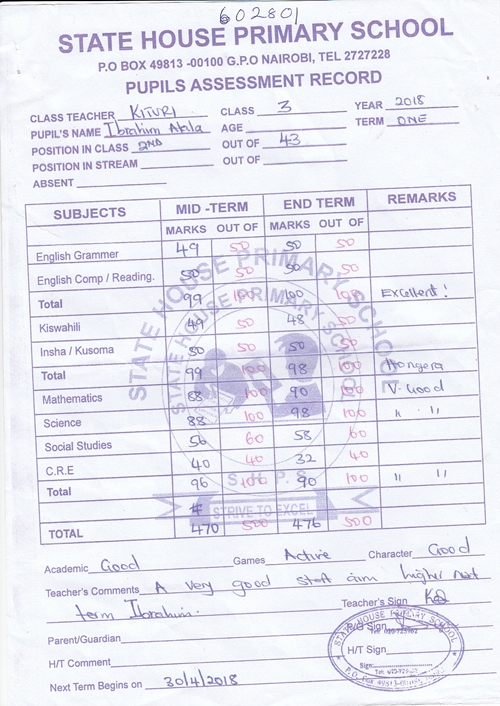 602801
STATE HOUSE PRIMARY SCHOOL
P.O BOX 49813 -00100 G.P.O NAIROBI, TEL 2727228
PUPILS ASSESSMENT RECORD
CLASS TEACHER KITURI CLASS 3 YEAR 2018
PUPIL'S NAME Ibrahim AGE TERM ONE
POSITION IN CLASS 2ND OUT OF 43
POSITION IN STREAM OUT OF
ABSENT
SUBJECTS MID -TERM END TERM REMARKS
MARKS OUT OF MARKS OUT OF
English Grammer 49 50 50 50
English Comp / Reading. 50 50 50 50
Total 99 100 100 100 Excellent!
Kiswahili 49 50 48 50
Insha / Kusoma 50 50 50 50
Total 99 100 98 100 Hongera
Mathematics 88 100 90 100 V. Good
Science 88 100 98 100 " "
Social Studies 56 60 58 60
C.R.E 40 40 32 40
Total 96 100 90 100 " "
#
TOTAL 470 500 476 500
STATE HOUSE PRIMARY SCHOOL
S.H.P.S
STRIVE TO EXCEL
Academic Good Games Active Character Good
Teacher's Comments A very good start aim higher next
term Ibrahim.
Teacher's Sign
Parent/Guardian P/G Sign
H/T Comment H/T Sign
Next Term Begins on 30/4/2018
STATE HOUSE PRIMARY SCHOOL
Sign: